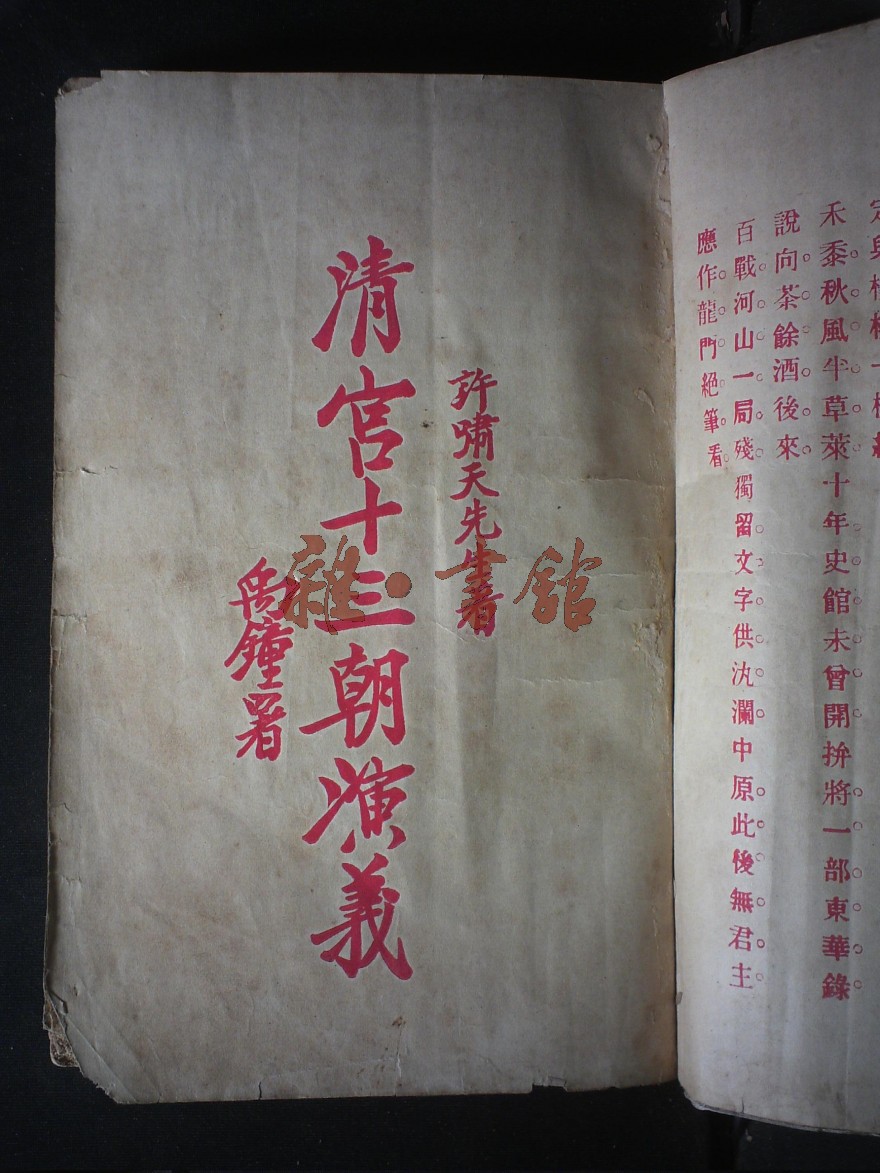 禾黍秋風半草萊十年史館未曾開拚將一部東華錄
說向茶餘酒後來
百戰河山一局殘獨留文字供汍瀾中原此後無君主
應作龍門絕筆看
許嘯天先生著
清宮十三朝演義
禹鐘署
雜·書館